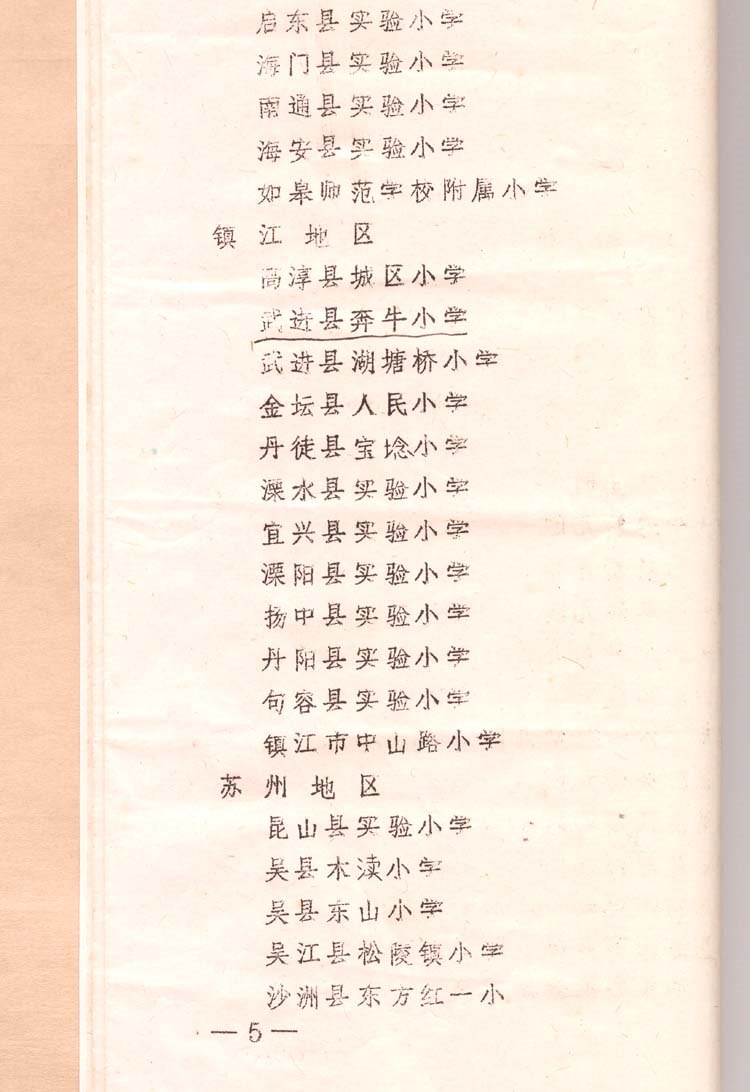 启东县实验小学
海门县实验小学
南通县实验小学
海安县实验小学
如皋师范学校附属小学
镇江地区
高淳县城区小学
武进县奔牛小学
武进县湖塘桥小学
金坛县人民小学
丹徒县宝埝小学
溧水县实验小学
宜兴县实验小学
溧阳县实验小学
扬中县实验小学
丹阳县实验小学
句容县实验小学
镇江市中山路小学
苏州地区
昆山县实验小学
吴县木渎小学
吴县东山小学
吴江县松陵镇小学
沙洲县东方红一小
—5—